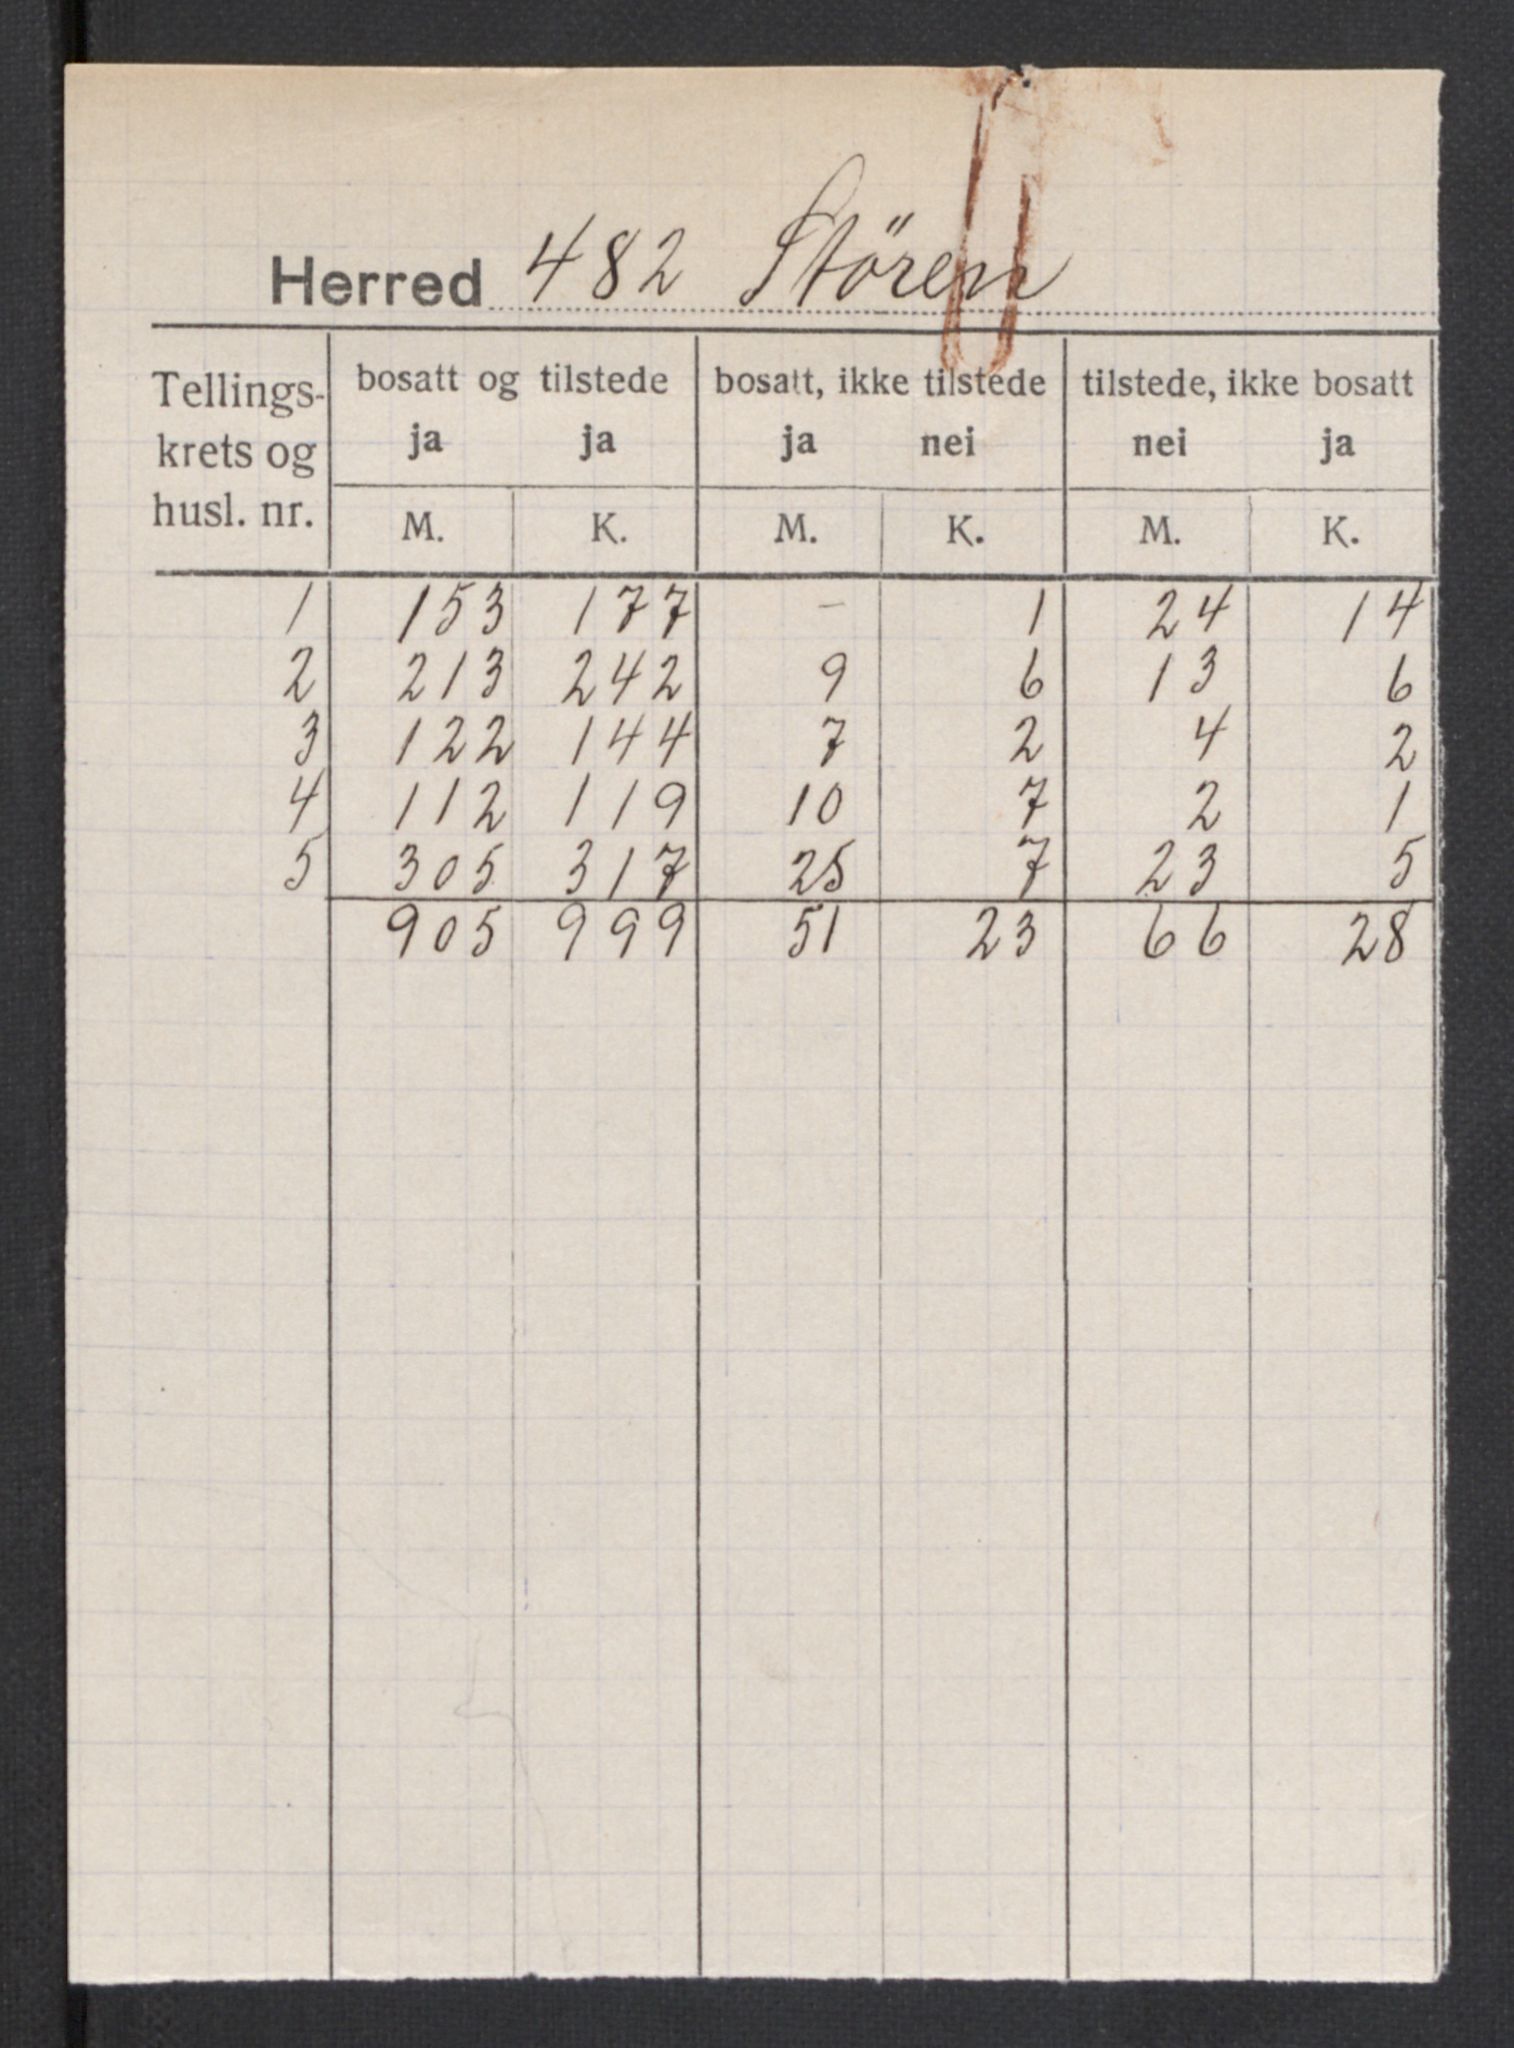 Herred 482 Stören
Tellings- bosatt og tilstede bosatt, ikke tilstede tilstede, ikke bosatt
krets og ja ja ja nei nei ja
husl. nr. M. K. M. K. M. K.
1 153 177 – 1 24 14
2 213 242 9 6 13 6
3 122 144 7 2 4 2
4 112 119 10 7 2 1
5 305 317 25 7 23 5
905 999 51 23 66 28